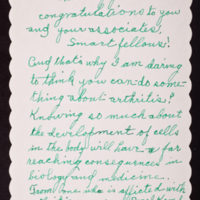 congratulations to you
and your associates.
Smart fellows!
And that's why I am daring
to think you can do some-
thing about arthritis!
Knowing so much about
the development of cells
in the body will have a
far reaching consequences in
biology and medicine.
From one who is afflicted with